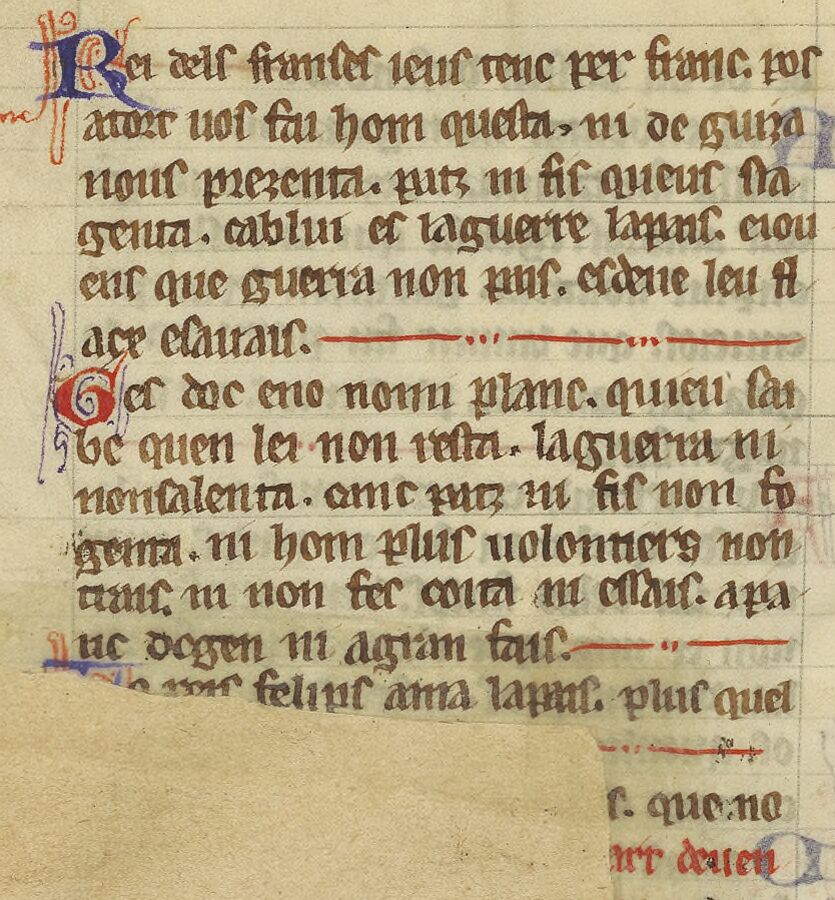 Rei dels franses ieus tenc per franc. pos
atort uos fai hom questa. ni de guiza
nous prezenta. patz ni fis queus sia
genta. cablui es laguerre lapais. eiou
eus que guerra non pais. esdeue leu fl
acx esauais.
Ges doc eno nomi planc. quieu sai
be quen lei non resta. laguerra ni
nonsalenta. canc patz ni fis non fo
genta. ni hom plus uolontiers non
trais. ni non fes coita ni essais. apa
uc dogen ni agran fais.
reis felips ama lapais. plus quel
s. que.no
deuen